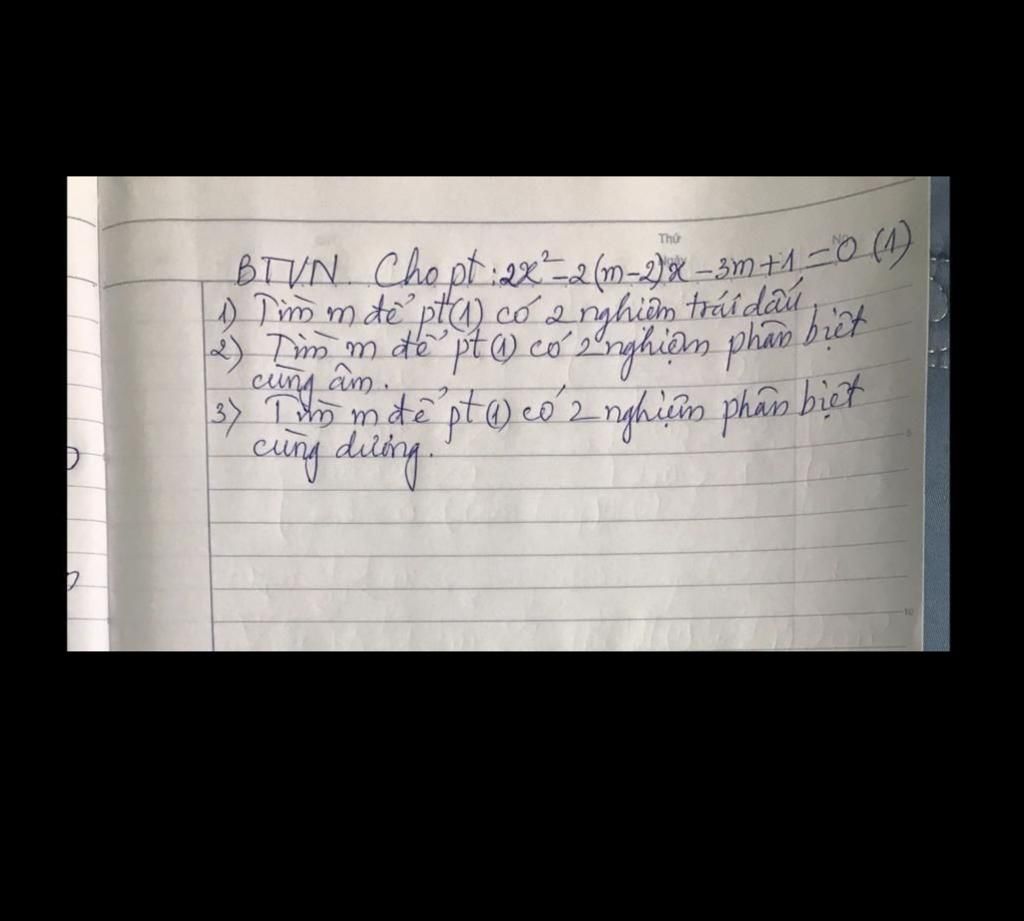 Thứ
BTVN. Cho pt: 2x² - 2(m-2)x - 3m + 1 = 0 (1)
1) Tìm m để pt(1) có 2 nghiệm trái dấu.
2) Tìm m để pt (1) có 2 nghiệm phân biệt
cùng âm.
3) Tìm m để pt (1) có 2 nghiệm phân biệt
cùng dương.
5
10